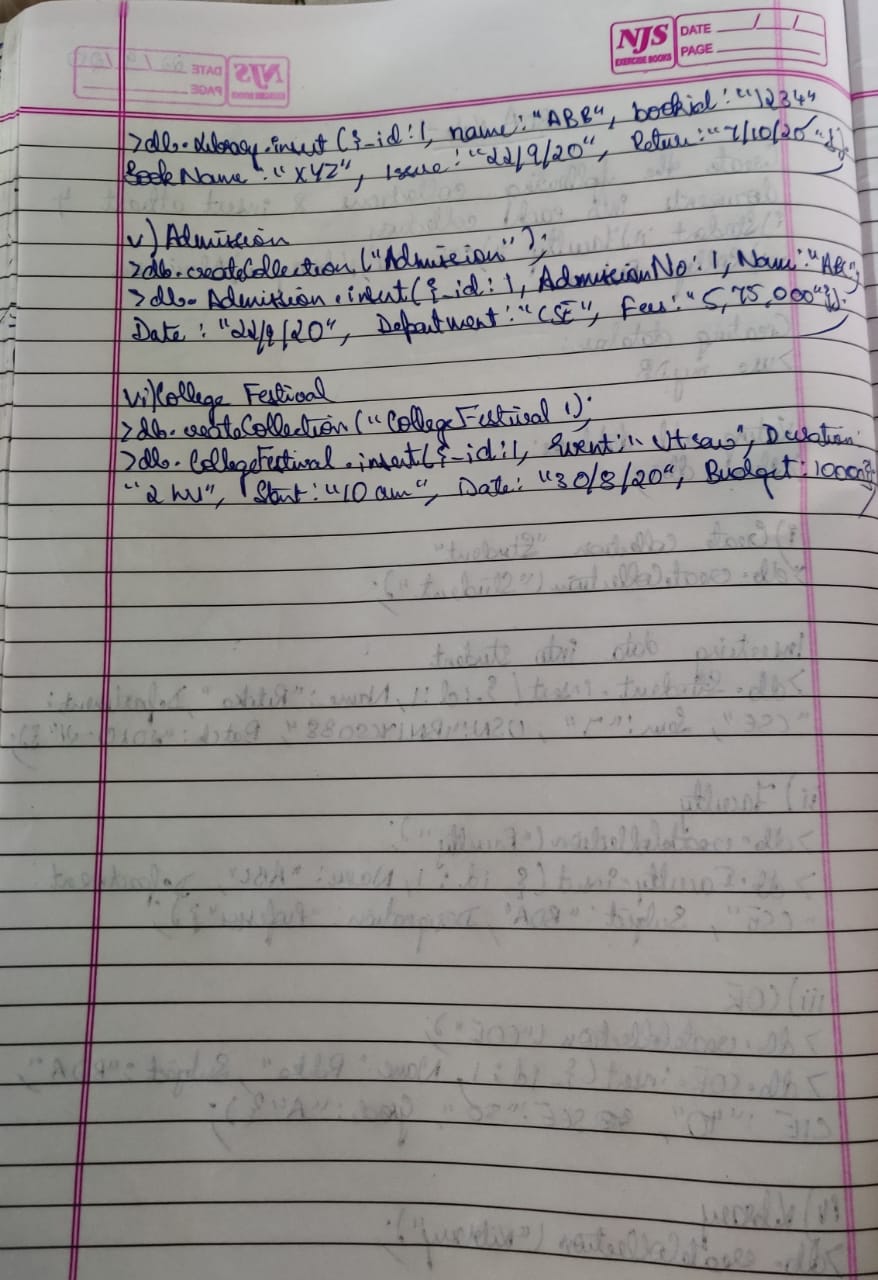 NJS
EXERCISE BOOKS
DATE / /
PAGE
>db.Library.insert({_id:1, name:"ABB", bookid:"1234"
BookName:"XYZ", Issue:"22/9/20", Return:"7/10/20"});
v) Admission
>db.createCollection("Admission");
>db.Admission.insert({_id:1, AdmissionNo:1, Name:"ABC",
Date:"22/9/20", Department:"CSE", Fees:"5,75,000"});
vi) College Festival
>db.createCollection("CollegeFestival");
>db.CollegeFestival.insert({_id:1, Event:"Utsav", Duration:
"2 hr", Start:"10 am", Date:"30/8/20", Budget:10000});